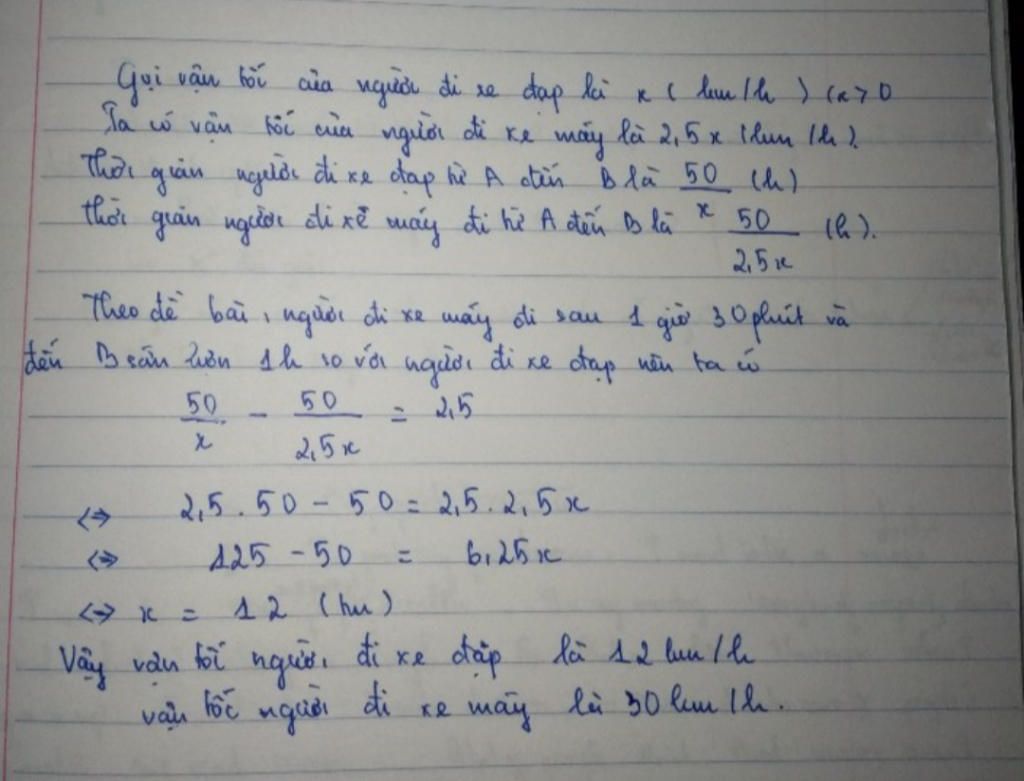 Gọi vận tốc của người đi xe đạp là x ( km/h ) (x > 0
Ta có vận tốc của người đi xe máy là 2,5 x (km /h).
Thời gian người đi xe đạp từ A đến B là 50/x (h)
thời gian người đi xe máy đi từ A đến B là 50/2,5x (h).
Theo đề bài, người đi xe máy đi sau 1 giờ 30 phút và
đến B sớm hơn 1h so với người đi xe đạp nên ta có
50/x - 50/2,5x = 2,5
<=> 2,5 . 50 - 50 = 2,5 . 2,5 x
<=> 125 - 50 = 6,25x
<=> x = 12 (km)
Vậy vận tốc người đi xe đạp là 12 km/h
vận tốc người đi xe máy là 30 km/h.